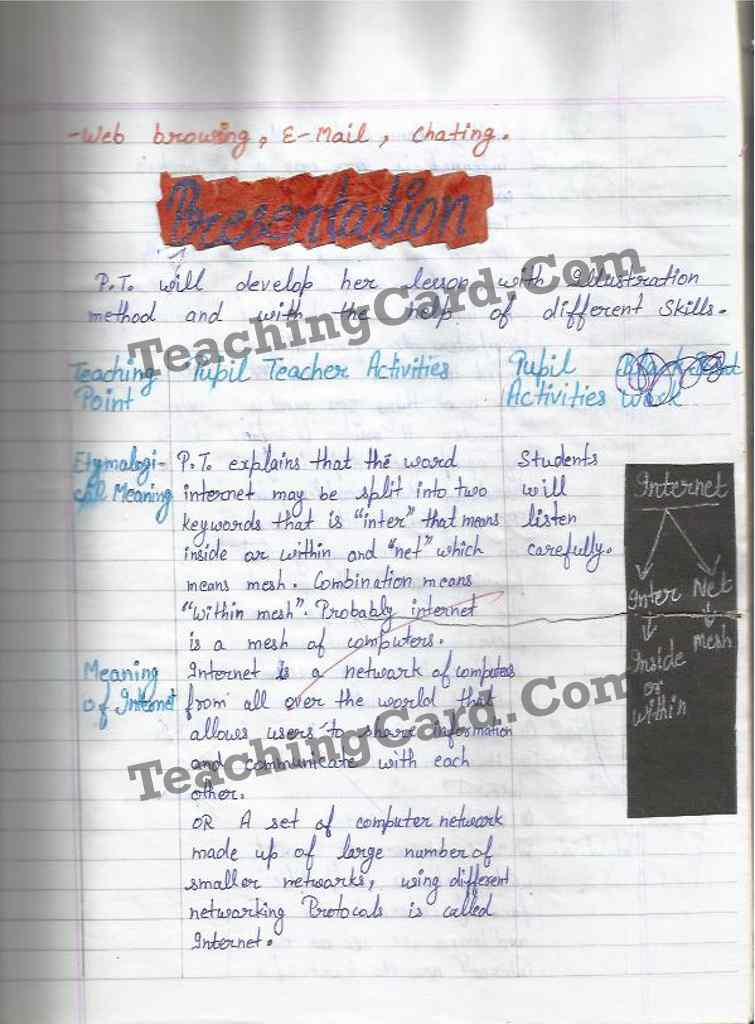 -Web browing, E-Mail, Chating.
Presentation
P.T. will develop her lesson with Illustration
method and with the help of different Skills.
TeachingCard.Com
Teaching Point
Pupil Teacher Activities
Pupil Activities
Work
Etymalogi-
cal Meaning
P.T. explains that the word
internet may be split into two
keywords that is "inter" that means
inside or within and "net" which
means mesh. Combination means
"within mesh". Probably internet
is a mesh of computers.
Students
will
listen
carefully.
Internet
Inter Net
Inside
or
within
Mesh
Meaning
of Internet
Internet is a network of computers
from all over the world that
allows users to share information
and communicate with each
other.
TeachingCard.Com
OR A set of computer network
made up of large number of
smaller networks, using different
networking Protocals is called
Internet.